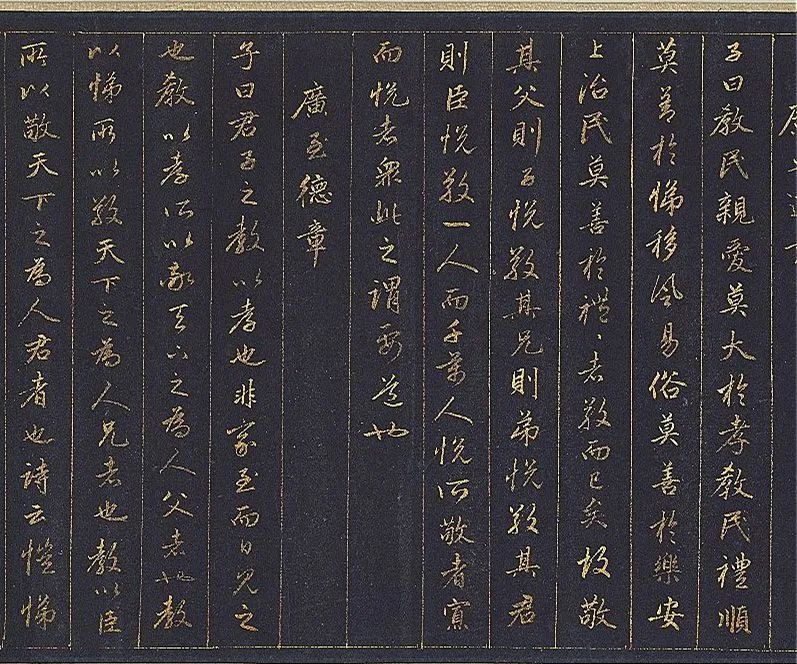 子曰教民親愛莫大於孝教民禮順
莫善於悌移風易俗莫善於樂安
上治民莫善於禮〻者敬而已矣故敬
其父則子悅敬其兄則弟悅敬其君
則臣悅敬一人而千萬人悅所敬者寡
而悅者衆此之謂要道也
廣至德章
子曰君子之教以孝也非家至而日見之
也教以孝所以敬天下之為人父者也教
以悌所以敬天下之為人兄者也教以臣
所以敬天下之為人君者也詩云愷悌